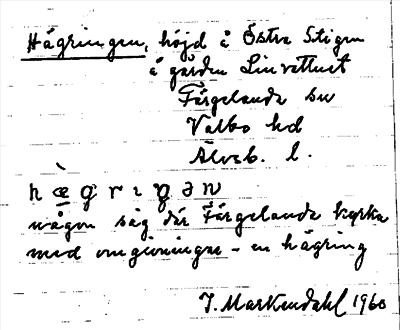 Hägringen, höjd å Östra Stigen
å gården Linvattnet
Färgelanda sn
Valbo hd
Älvsb. l.
hæ̀grıŋən
någon såg där Färgelanda kyrka
med omgivningar – en hägring
J. Markendahl 1960